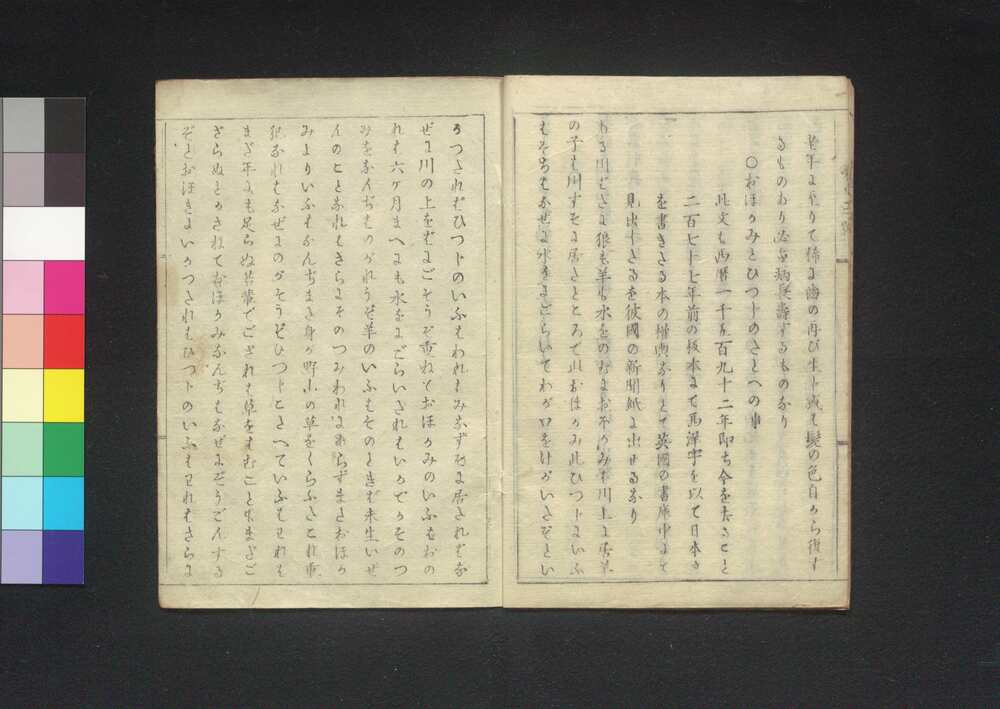 老年に至りて稀に歯の再び生ト或も髪の色自から復す
るものあり必ず病
長壽するものなり
○おほかみとひつトのたとへの事
此文も西暦一千五百九十二年即ち今を去ること
二百七十七年前の板本にて西洋字を以て日本
を書きたる本の
なりとて英國の書庫中にて
見出トたるを彼國の新聞紙に出せるなり
ある川ばたに狼も羊も水をのむにおほかみは川上に居羊
の子も川すそに居たところで此おほかみ此ひつトにいふ
もそちもなぜに水をにごらいてわが口をけがいたぞとい
うつたれバひつトのいふもわれもみなすそに居たれバな
ぜに川の上をバにごそうぞ重ねておほかみのいふもおの
れも六ケ月まへにも水をにごらいたれもいかでかそのつ
みをなんぢものがれうぞ羊のいふもそのときバ未生いぜ
んのことなれもさらにそのつみわれにあらずまたおほか
みよりいふもなんぢまた身が野山の草をくらふたこれ重
犯なれもなぜにのがそうぞひつトこたへていふもわれも
まだ年にも足らぬ若輩でござれも草をはむこともまだご
ざらぬとかさねておほかみなんぢもなぜにぞうごんする
ぞとおほきにいかつたれもひつトのいふもわれもさらに